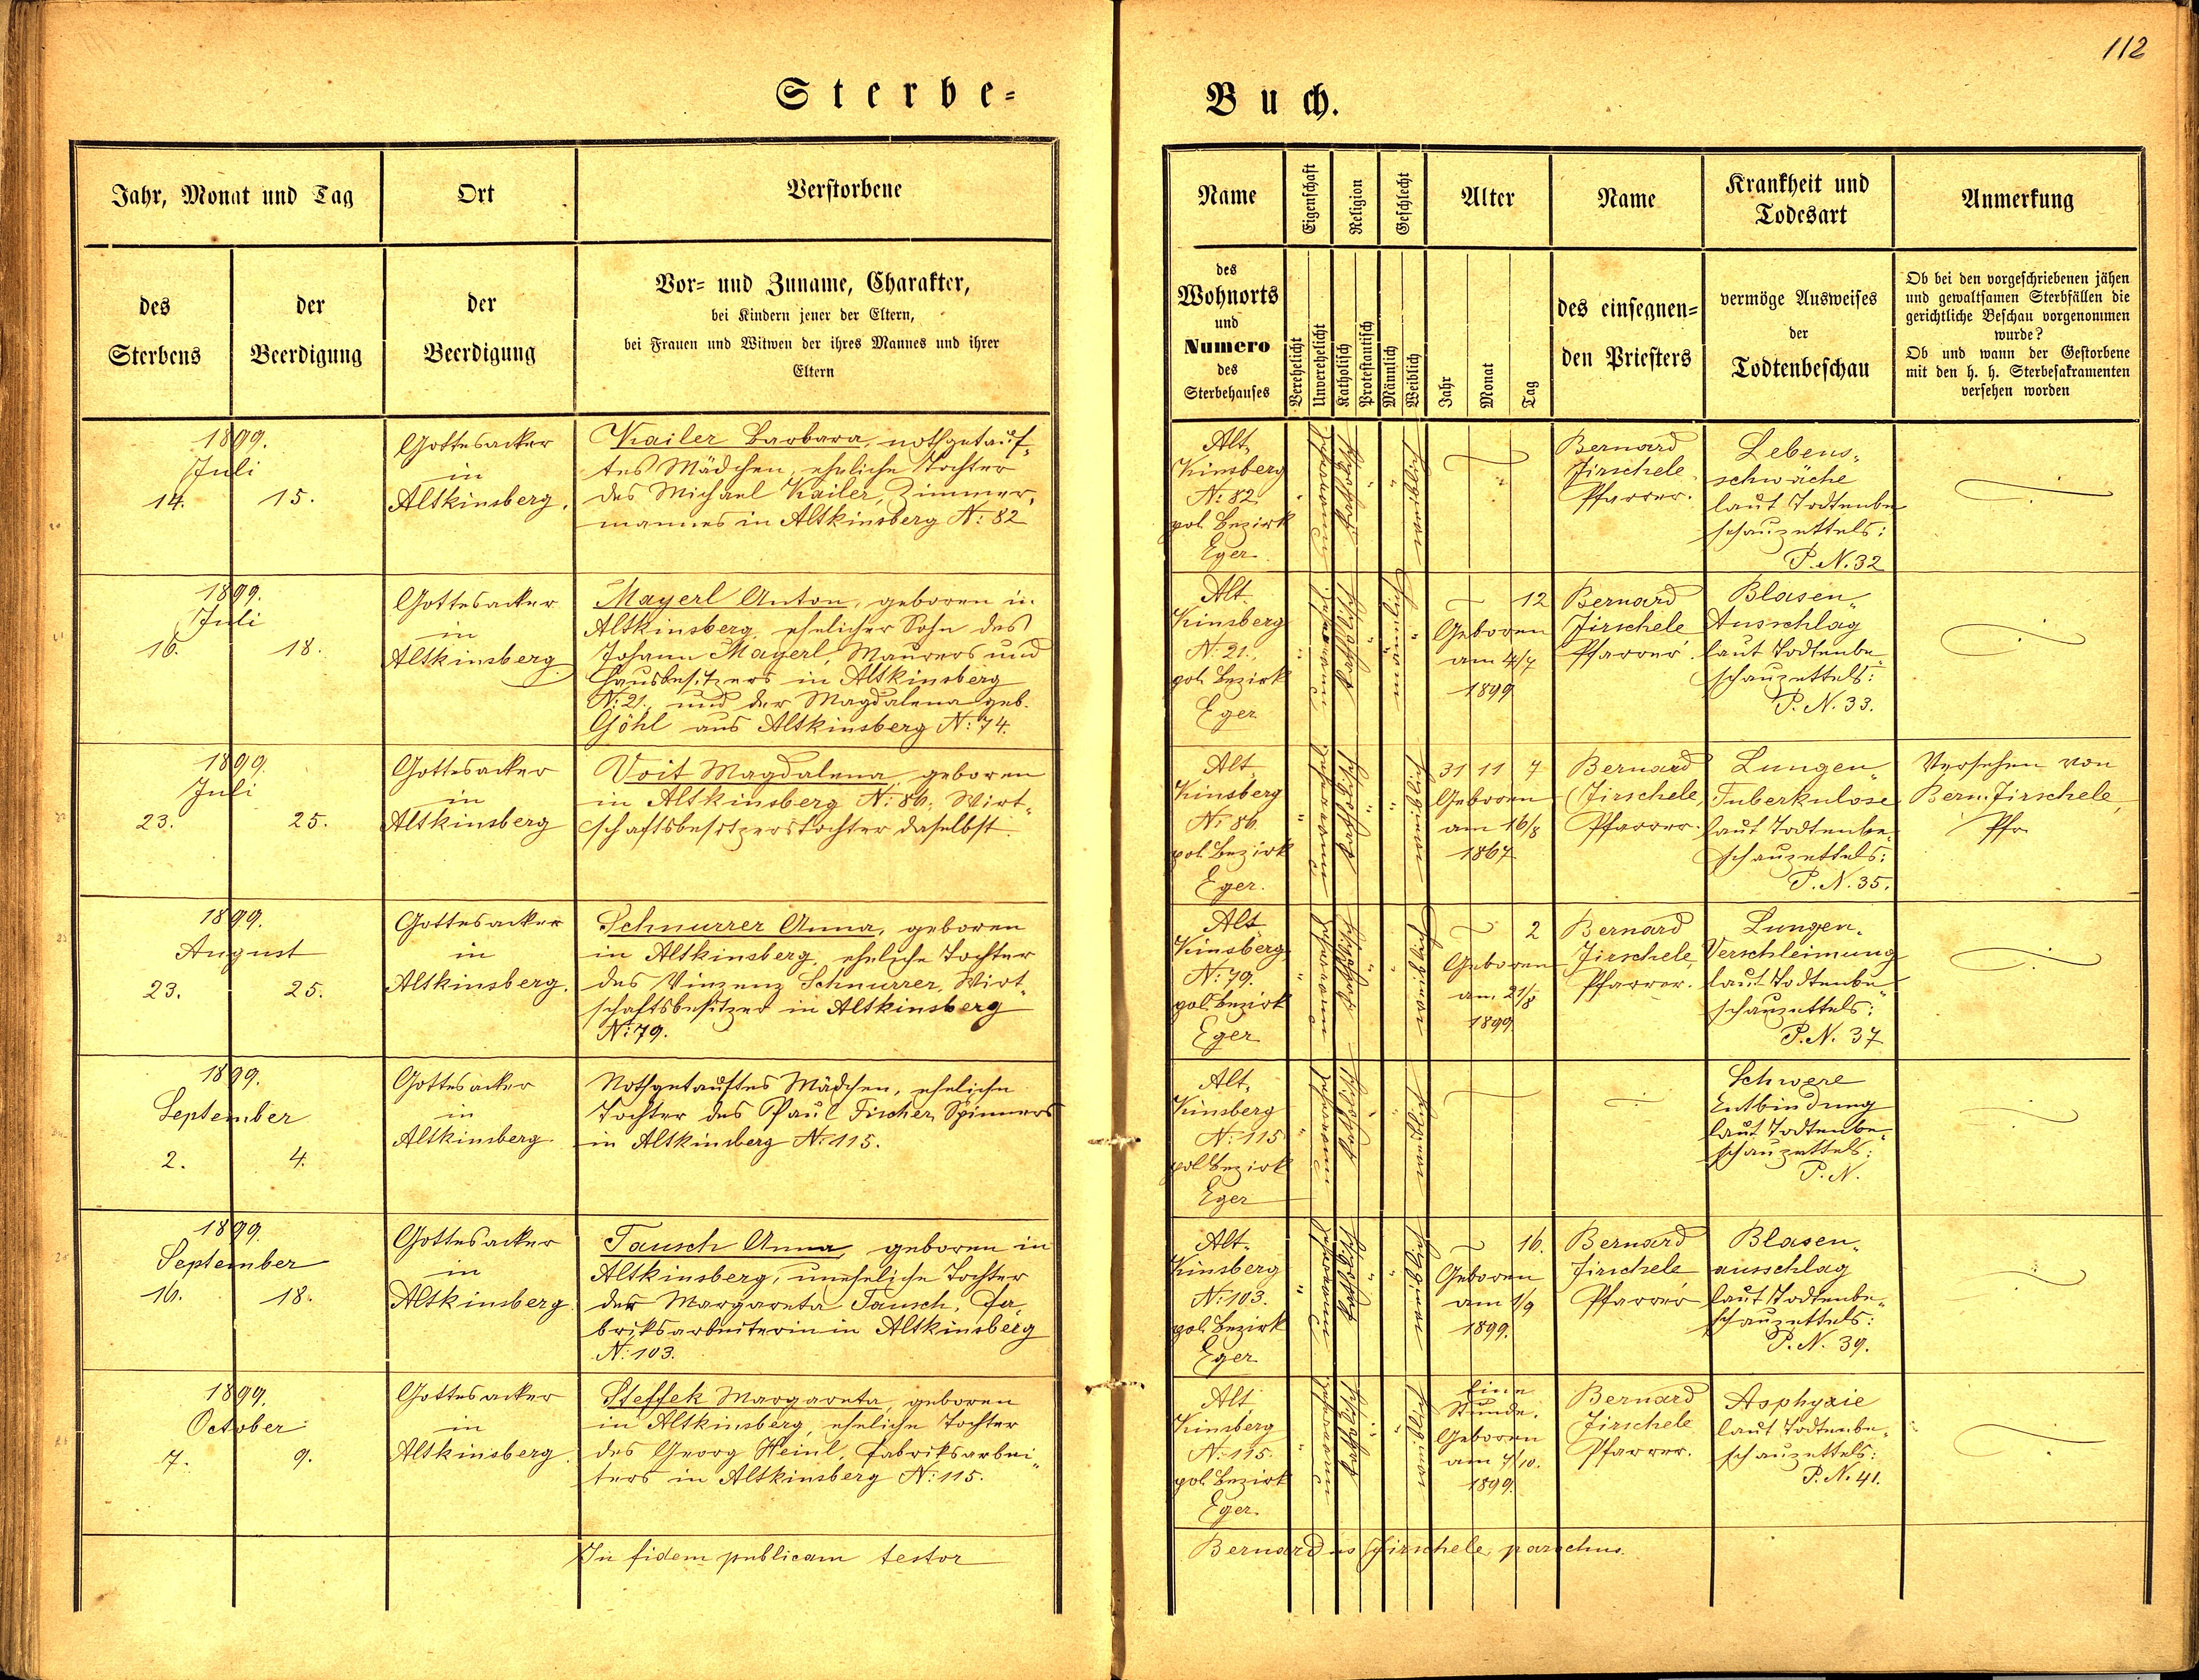 112
Sterbe=
Buch.
Jahr, Monat und Tag
Ort
Verstorbene
des
Sterbens
der
Beerdigung
der
Beerdigung
Vor= und Zuname, Charakter,
bei Kindern jener der Eltern,
bei Frauen und Witwen der ihres Mannes und ihrer
Eltern
Name
Eigenschaft
Religion
Geschlecht
Alter
Name
Krankheit und
Todesart
Anmerkung
des
Wohnorts
und
Numero
des
Sterbehauses
Verehelicht
Unverehelicht
Katholisch
Protestantisch
Männlich
Weiblich
Jahr
Monat
Tag
des einsegnen=
den Priesters
vermöge Ausweises
der
Todtenbeschau
Ob bei den vorgeschriebenen jähen
und gewaltsamen Sterbfällen die
gerichtliche Beschau vorgenommen
wurde?
Ob und wann der Gestorbene
mit den h. h. Sterbesakramenten
versehen worden
1899.
Juli
14.
15.
Gottesacker
in
Altkinsberg.
Kailer Barbara, nothgetauf„
tes Mädchen, eheliche Tochter
des Michael Kailer, Zimmer„
mannes in Altkinsberg N: 82
Alt„
Kinsberg
N: 82
pol. Bezirk
Eger
katholisch
weiblich
Bernard
Jirschele
Pfarrer.
Lebens„
schwäche
laut Todtenbe
schauzettels:
P. N. 32
1899.
Juli
16.
18.
Gottesacker
in
Altkinsberg.
Mayerl Anton, geboren in
Altkinsberg, ehelicher Sohn des
Johann Mayerl, Maurers und
Hausbesitzers in Altkinsberg
N: 21., und der Magdalena geb.
Göhl aus Altkinsberg N: 74.
Alt„
Kinsberg
N: 21.,
pol. Bezirk
Eger
katholisch
männlich
12
Geboren
am 4/7
1899
Bernard
Jirschele
Pfarrer.
Blasen„
Ausschlag
laut Todtenbe„
schauzettels:
P. N. 33.
1899.
Juli
23.
25.
Gottesacker
in
Altkinsberg
Voit Magdalena, geboren
in Altkinsberg N: 86, Wirt„
schaftsbesitzerstochter daselbst.
Alt„
Kinsberg
N: 86
pol. Bezirk
Eger.
katholisch
weiblich
31 11 7
Geboren
am 16/8
1867
Bernard
Jirschele,
Pfarrer.
Lungen„
Tuberkulose
laut Todtenbe„
schauzettels:
P. N. 35.
Versehen von
Bern. Jirschele,
Pfr.
1899.
August
23.
25.
Gottesacker
in
Altkinsberg.
Schnurrer Anna, geboren
in Altkinsberg, eheliche Tochter
des Vinzenz Schnurrer, Wirt„
schaftsbesitzer in Altkinsberg
N: 79.
Alt„
Kinsberg
N: 79.
pol. Bezirk
Eger
katholisch
weiblich
2
Geboren
am 21/8
1899
Bernard
Jirschele,
Pfarrer.
Lungen„
Verschleimung
laut Todtenbe„
schauzettels:
P. N. 37
1899.
September
2.
4.
Gottesacker
in
Altkinsberg
Nothgetauftes Mädchen, eheliche
Tochter des Paul Fischer, Spinners
in Altkinsberg N: 115.
Alt„
Kinsberg
N: 115
pol Bezirk
Eger
katholisch
weiblich
Schwere
Entbindung
laut Todtenbe„
schauzettels:
P. N.
1899.
September
16.
18.
Gottesacker
in
Altkinsberg.
Tausch Anna, geboren in
Altkinsberg, uneheliche Tochter
der Margareta Tausch, Fa„
briksarbeiterin in Altkinsberg
N: 103.
Alt„
Kinsberg
N: 103.
pol. Bezirk
Eger
katholisch
weiblich
16.
Geboren
am 1/9
1899.
Bernard
Jirschele
Pfarrer
Blasen„
ausschlag
laut Todtenbe„
schauzettels:
P. N. 39.
1899.
October
7.
9.
Gottesacker
in
Altkinsberg.
Steffek Margareta, geboren
in Altkinsberg, eheliche Tochter
des Georg Heinl, Fabriksarbei„
ters in Altkinsberg N: 115.
Alt„
Kinsberg
N: 115.
pol. Bezirk
Eger.
katholisch
weiblich
Eine
Stunde.
Geboren
am 7/10.
1899.
Bernard
Jirschele
Pfarrer.
Asphyxie
laut Todtenbe„
schauzettels:
P. N. 41.
In fidem publicam testor
Bernardus Jirschele, parochus.